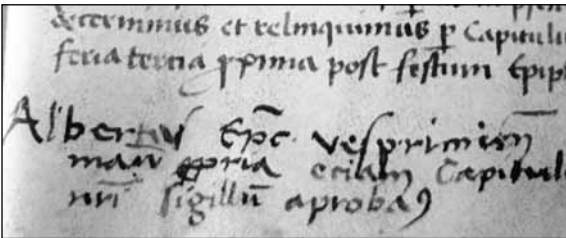 decernimus et relinquimus p̱ Capitulu
feria tertia ꝓxima post festum Epip
Albertus Ep̄c vesprimien̄
man̄ ꝓpria eciam Capitul
nr̄i sigillū aprobaꝰ